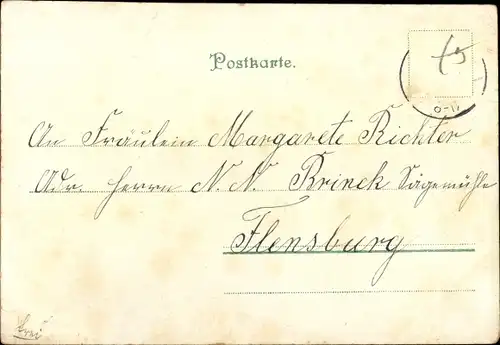 Postkarte.
An Fräulein Margarete Richter
Adr. Herrn N. N. Brinck Sägemühle
Flensburg
frei